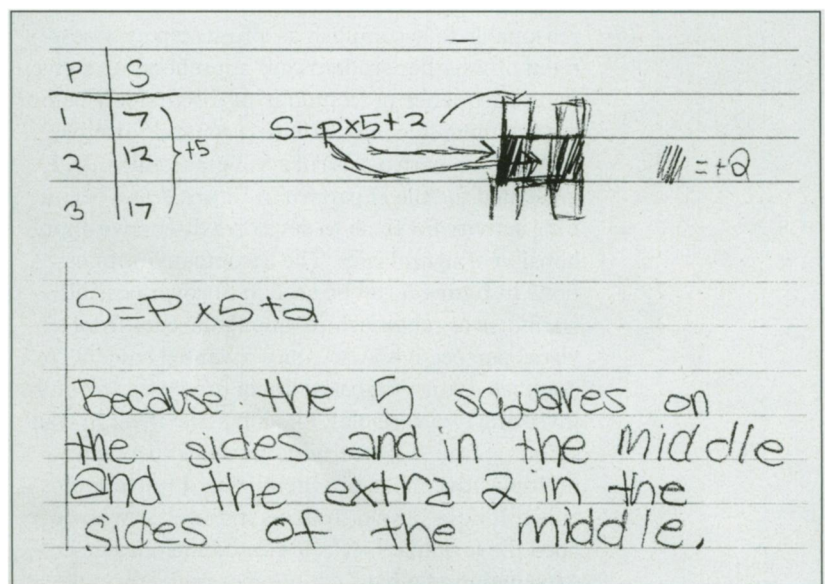 P S
1 7
2 12 +5
3 17
S=P×5+2
= +2
S=P×5+2
Because the 5 squares on
the sides and in the middle
and the extra 2 in the
sides of the middle.